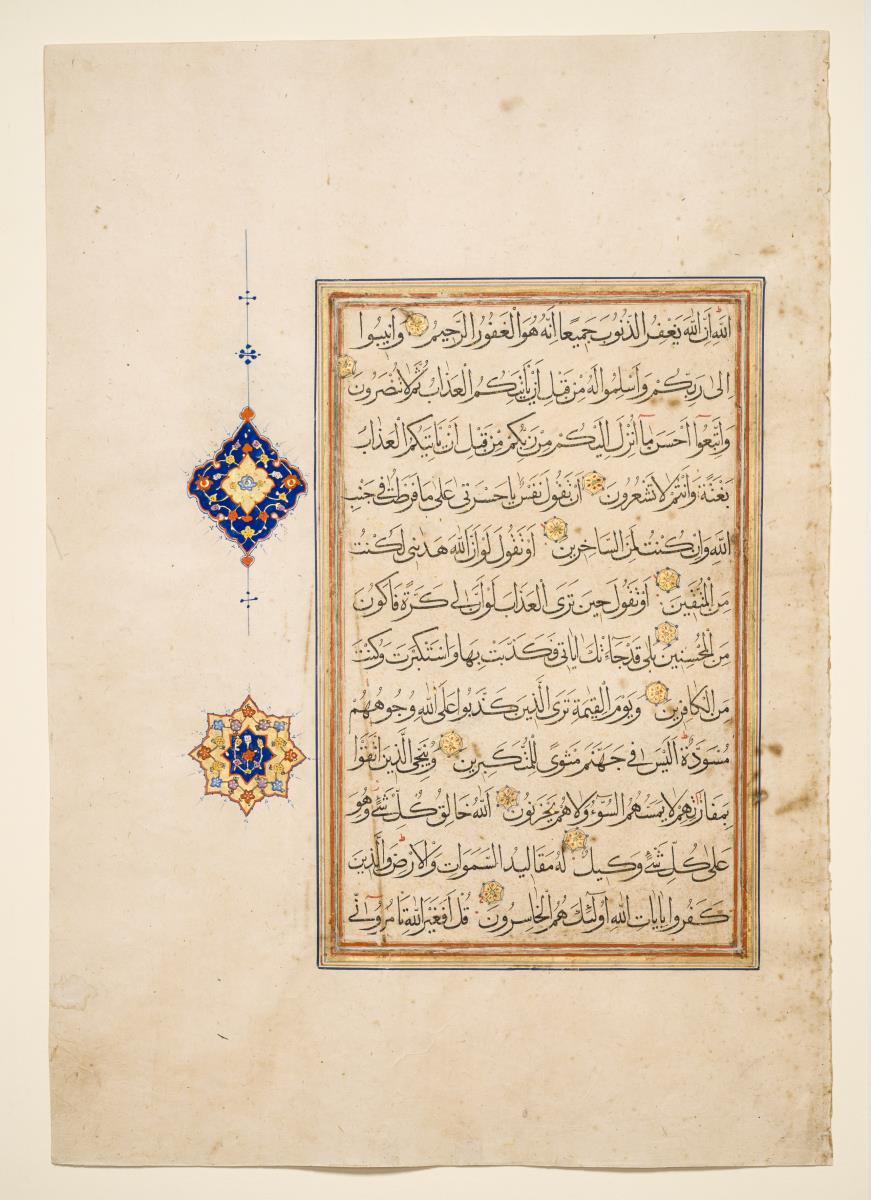 اللهِ اِنَّ اللهَ يَغْفِرُ الذُّنُوبَ جَمِيعًا اِنَّهُ هُوَ الْغَفُورُ الرَّحِيمُ وَاَنِيبُوا
اِلىٰ رَبِّكُمْ وَاَسْلِمُوا لَهُ مِنْ قَبْلِ اَنْ يَأْتِيَكُمُ الْعَذَابُ ثُمَّ لَا تُنْصَرُونَ
وَاتَّبِعُوا اَحْسَنَ مَا اُنْزِلَ اِلَيْكُمْ مِنْ رَبِّكُمْ مِنْ قَبْلِ اَنْ يَأْتِيَكُمُ الْعَذَابُ
بَغْتَةً وَاَنْتُمْ لَا تَشْعُرُونَ اَنْ تَقُولَ نَفْسٌ يَا حَسْرَتىٰ عَلىٰ مَا فَرَّطْتُ فِي جَنْبِ
اللهِ وَاِنْ كُنْتُ لَمِنَ السَّاخِرِينَ اَوْ تَقُولَ لَوْ اَنَّ اللهَ هَدٰينِي لَكُنْتُ
مِنَ الْمُتَّقِينَ اَوْ تَقُولَ حِينَ تَرَى الْعَذَابَ لَوْ اَنَّ لِي كَرَّةً فَاَكُونَ
مِنَ الْمُحْسِنِينَ بَلىٰ قَدْ جَاءَتْكَ اٰيَاتِي فَكَذَّبْتَ بِهَا وَاسْتَكْبَرْتَ وَكُنْتَ
مِنَ الْكَافِرِينَ وَيَوْمَ الْقِيٰمَةِ تَرَى الَّذِينَ كَذَبُوا عَلَى اللهِ وُجُوهُهُمْ
مُسْوَدَّةٌ اَلَيْسَ فِي جَهَنَّمَ مَثْوًى لِلْمُتَكَبِّرِينَ وَيُنَجِّي الَّذِينَ اتَّقَوْا
بِمَفَازَتِهِمْ لَا يَمَسُّهُمُ السُّوءُ وَلَا هُمْ يَحْزَنُونَ اَللهُ خَالِقُ كُلِّ شَيْءٍ وَهُوَ
عَلىٰ كُلِّ شَيْءٍ وَكِيلٌ لَهُ مَقَالِيدُ السَّمٰوَاتِ وَالْاَرْضِ وَالَّذِينَ
كَفَرُوا بِاٰيَاتِ اللهِ اُولٰئِكَ هُمُ الْخَاسِرُونَ قُلْ اَفَغَيْرَ اللهِ تَأْمُرُونِّي